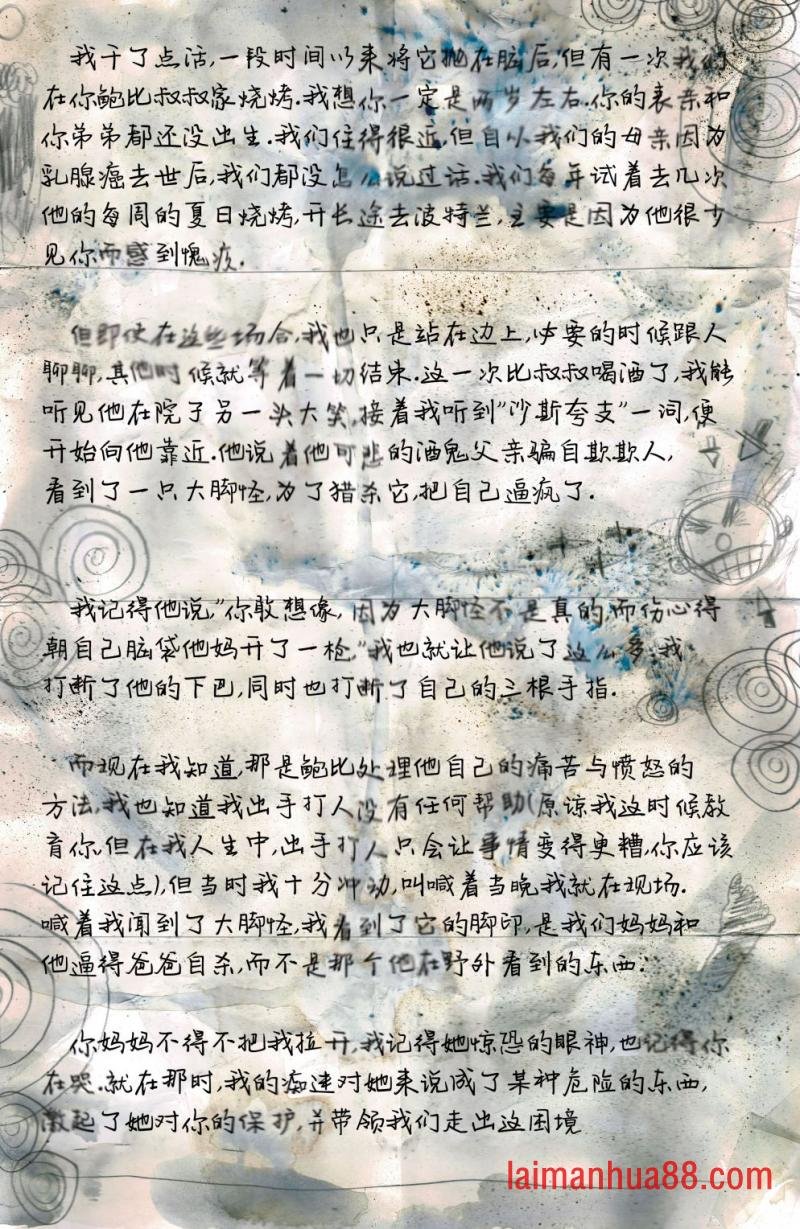 我干了点活,一段时间以来将它抛在脑后,但有一次我们
在你鲍比叔叔家烧烤.我想你一定是两岁左右.你的表亲和
你弟弟都还没出生.我们住得很近,但自从我们的母亲因为
乳腺癌去世后,我们都没怎么说过话.我们每年试着去几次
他的每周的夏日烧烤,开长途去波特兰,主要是因为他很少
见你而感到愧疚.
但即使在这些场合,我也只是站在边上,必要的时候跟人
聊聊,其他时候就等着一切结束.这一次比叔叔喝酒了,我能
听见他在院子另一头大笑,接着我听到"沙斯夸支"一词,便
开始向他靠近.他说着他可悲的酒鬼父亲骗自欺欺人,
看到了一只大脚怪,为了猎杀它,把自己逼疯了.
我记得他说,"你敢想像,因为大脚怪不是真的,而伤心得
朝自己脑袋他妈开了一枪,"我也就让他说了这么多.我
打断了他的下巴,同时也打断了自己的三根手指.
而现在我知道,那是鲍比处理他自己的痛苦与愤怒的
方法,我也知道我出手打人没有任何帮助(原谅我这时候教
育你,但在我人生中,出手打人只会让事情变得更糟,你应该
记住这点),但当时我十分冲动,叫喊着当晚我就在现场.
喊着我闻到了大脚怪,我看到了它的脚印,是我们妈妈和
他逼得爸爸自杀,而不是那个他在野外看到的东西.
你妈妈不得不把我拉开,我记得她惊恐的眼神,也记得你
在哭.就在那时,我的痴迷对她来说成了某种危险的东西,
激起了她对你的保护,并带领我们走出这困境
laimanhua88.com